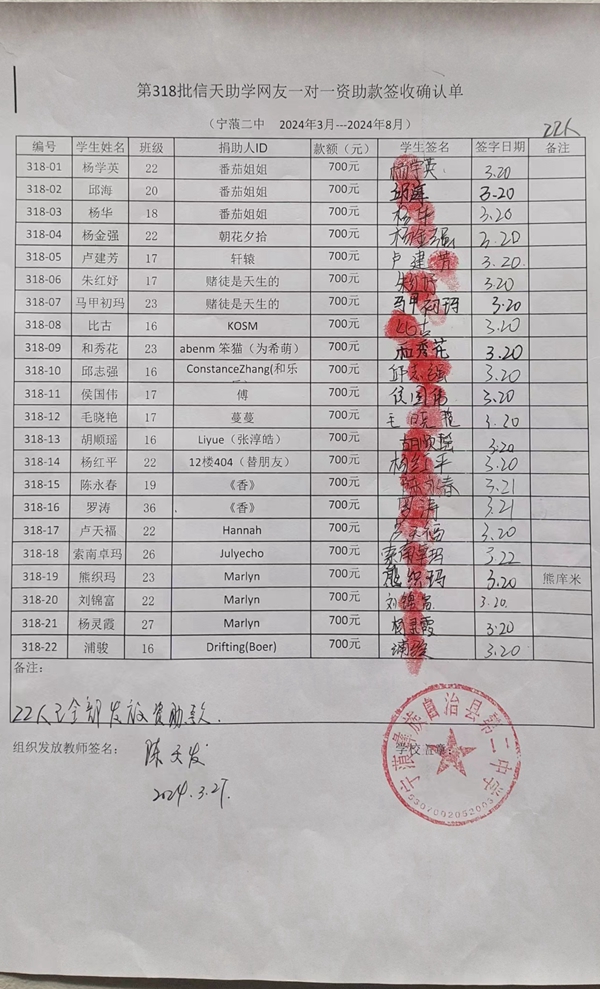 第318批信天助学网友一对一资助款签收确认单
（宁蒗二中 2024年3月---2024年8月） 22人
编号 学生姓名 班级 捐助人ID 款额（元） 学生签名 签字日期 备注
318-01 杨学英 22 番茄姐姐 700元 杨学英 3.20
318-02 邱海 20 番茄姐姐 700元 邱海 3.20
318-03 杨华 18 番茄姐姐 700元 杨华 3.20
318-04 杨金强 22 朝花夕拾 700元 杨金强 3.20
318-05 卢建芳 17 轩辕 700元 卢建芳 3.20.
318-06 朱红妤 17 赌徒是天生的 700元 朱红妤 3.20
318-07 马甲初玛 23 赌徒是天生的 700元 马甲初玛 3.20
318-08 比古 16 KOSM 700元 比古 3.20
318-09 和秀花 23 abenm 笨猫（为希萌） 700元 和秀花 3.20
318-10 邱志强 16 ConstanceZhang(和乐 700元 邱志强 3.20
318-11 侯国伟 17 傅 700元 侯国伟 3.20
318-12 毛晓艳 17 蔓蔓 700元 毛晓艳 3.20
318-13 胡顺瑶 16 Liyue（张淳皓） 700元 胡顺瑶 3.20
318-14 杨红平 22 12楼404（替朋友） 700元 杨红平 3.20
318-15 陈永春 19 《香》 700元 陈永春 3.21
318-16 罗涛 36 《香》 700元 罗涛 3.21
318-17 卢天福 22 Hannah 700元 卢天福 3.20
318-18 索南卓玛 26 Julyecho 700元 索南卓玛 3.22
318-19 熊织玛 23 Marlyn 700元 熊织玛 3.20 熊庠米
318-20 刘锦富 22 Marlyn 700元 刘锦富 3.20.
318-21 杨灵霞 27 Marlyn 700元 杨灵霞 3.20
318-22 浦骏 16 Drifting(Boer) 700元 浦骏 3.20
备注：
22人已全部发放资助款.
组织发放教师签名： 陈天发 学校盖章：
2024.3.27.
宁蒗彝族自治县第二中学